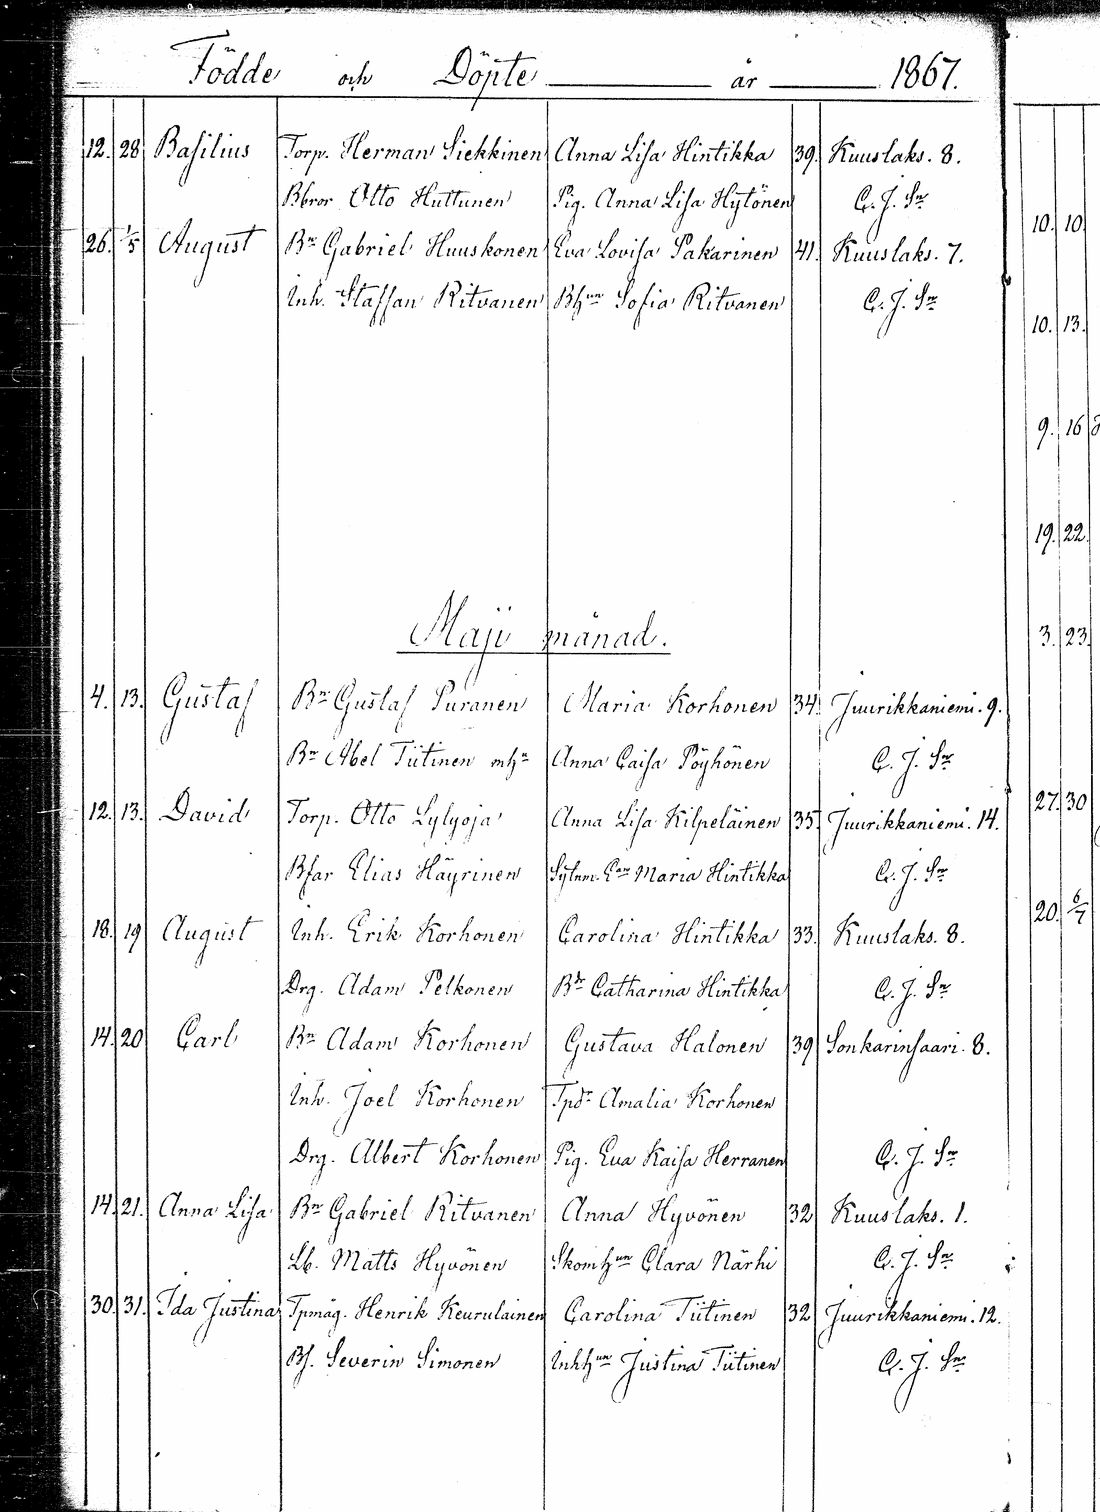 Födde och Döpte år 1867.
12. 28 Basilius Torp. Herman Siekkinen Anna Lisa Hintikka 39. Kuuslaks. 8.
Bbror Otto Huttunen Pig. Anna Lisa Hytönen C. J. Sn
26. 1/5 August Bn Gabriel Huuskonen Eva Lovisa Pakarinen 41. Kuuslaks. 7.
Inh. Staffan Ritvanen Bhun Sofia Ritvanen C. J. Sn
Maji månad.
4. 13. Gustaf Bn Gustaf Puranen Maria Korhonen 34. Juurikkaniemi. 9.
Bn Abel Tiitinen mhn Anna Caisa Pöyhönen C. J. Sn
12. 13. David Torp. Otto Lylyoja Anna Lisa Kilpeläinen 35. Juurikkaniemi. 14.
Bfar Elias Häyrinen Maria Hintikka C. J. Sn
18. 19 August Inh. Erik Korhonen Carolina Hintikka 33. Kuuslaks. 8.
Drg. Adam Pelkonen Bdr Catharina Hintikka C. J. Sn
14. 20 Carl Bn Adam Korhonen Gustava Halonen 39 Sonkarinsaari. 8.
Inh. Joel Korhonen Tpdr Amalia Korhonen
Drg. Albert Korhonen Pig. Eva Kaisa Herranen C. J. Sn
14. 21. Anna Lisa Bn Gabriel Ritvanen Anna Hyvönen 32 Kuuslaks. 1.
Lb. Matts Hyvönen Skomhun Clara Närhi C. J. Sn
30. 31. Ida Justina Tpmåg. Henrik Keurulainen Carolina Tiitinen 32 Juurikkaniemi. 12.
Bs. Severin Simonen Inhhun Justina Tiitinen C. J. Sn
10. 10.
10. 13.
9. 16
19. 22.
3. 23.
27. 30
20. 6/7